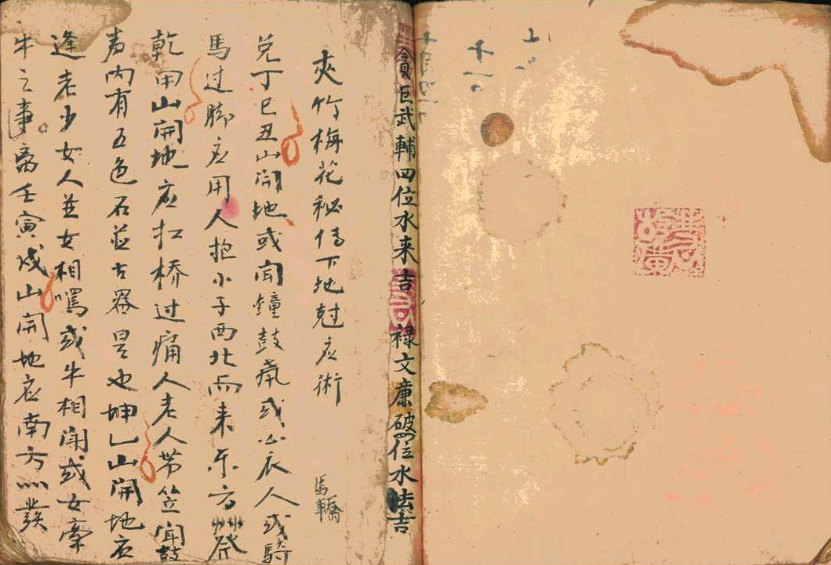 貪巨武輔四位水来吉 禄文廉破四位水法吉
夾竹梅花秘傳下地尅应術
馬轎
兑丁巳丑山開地或聞鐘鼓或衣人或騎
馬过脚应用人抱小子西北雨来东方
乾甲山開地应扛桥过痛人老人带笠聞鼓
内有五色石並古器是也坤乙山開地应
逢老少女人並女相罵或牛相鬪或女牽
牛之事离壬寅戌山開地应南方發